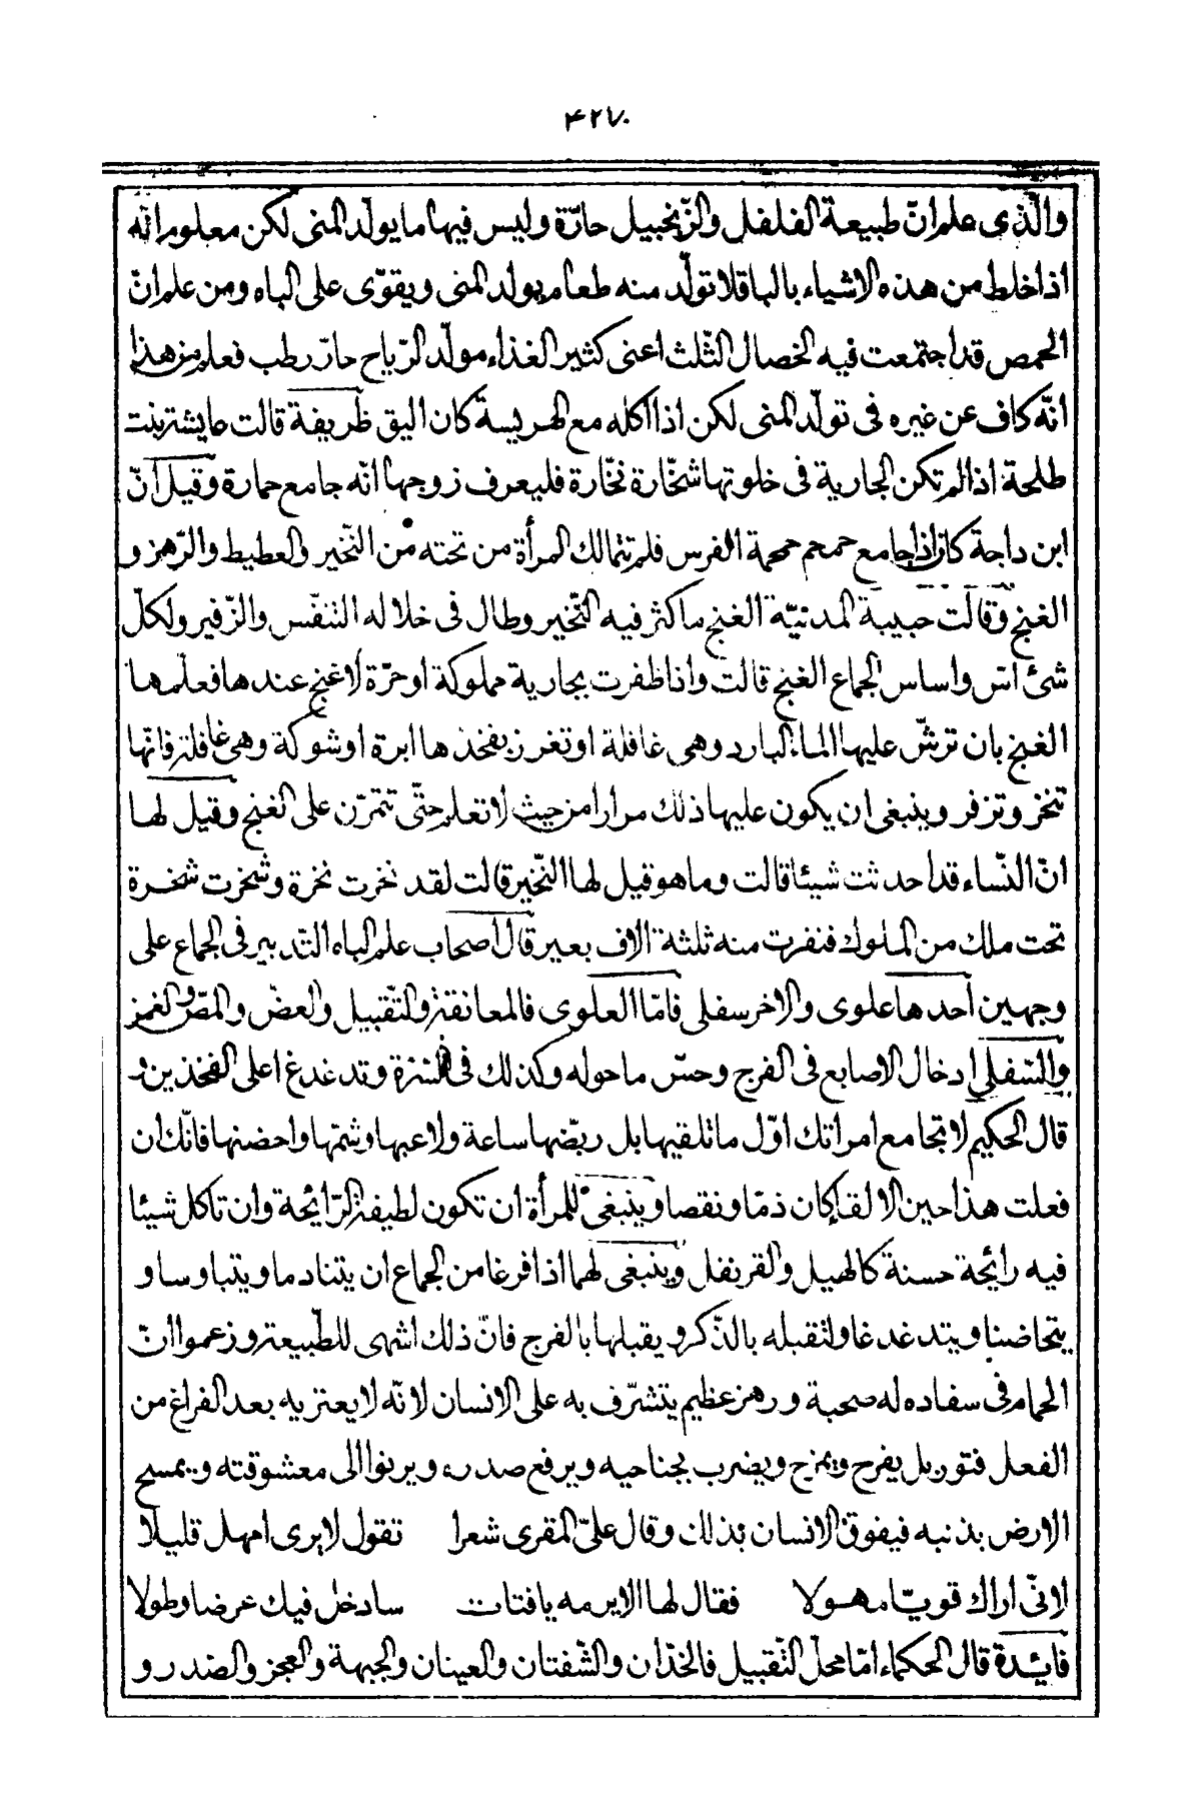 ۴۲۷
والّذى علم انّ طبيعة الفلفل والزّنجبيل حارّة وليس فيها ما يولّد المنى لكن معلوم انّه
اذا خلط من هذه الاشياء بالباقلا تولّد منه طعام يولد المنى ويقوّى على الباه ومن علم انّ
الحمص قد اجتمعت فيه الخصال الثّلث اعنى كثير الغذاء مولّد الرّياح حارّ رطب فعلم من هذا
انّه كاف عن غيره فى تولّد المنى لكن اذا اكله مع الهريسة كان اليق ظريفة قالت عايشة بنت
طلحة اذا لم تكن الجارية فى خلوتها شخّارة نخّارة فليعرف زوجها انّه جامع حمارة وقيل انّ
ابن داجة كان اذا جامع حمحم حمحمة الفرس فلم تتمالك المرأة من تحته من النّخير والغطيط والرّهز و
الغنج وقالت حبيبة المدنيّة الغنج ما كثر فيه النّخير وطال فى خلاله التنفّس والزّفير ولكلّ
شئ اسّ واساس الجماع الغنج قالت واذا ظفرت بجارية مملوكة او حرّة لا غنج عندها فعلّمها
الغنج بان ترشّ عليها الماء البارد وهى غافلة او تغرز بفخذها ابرة او شوكة وهى غافلة فانّها
تنخر وتزفر وينبغى ان يكون عليها ذلك مرارا من حيث لا تعلم حتّى تتمرّن على الغنج وقيل لها
انّ النّساء قد احدثت شيئا قالت وما هو قيل لها النّخير قالت لقد نخرت نخرة وشخرت شخرة
تحت ملك من الملوك فنفرت منه ثلثة الاف بعير قال اصحاب علم الباه التّدبير فى الجماع على
وجهين احدها علوى والاخر سفلى فامّا العلوى فالمعانقة والتّقبيل والعضّ والمصّ والغمز
والسّفلى ادخال الاصابع فى الفرج وحسّ ما حوله وكذلك فى السّرّة وتدغدغ اعلى الفخذين و
قال الحكيم لا تجامع امراتك اوّل ما تلقيها بل ربّضها ساعة ولاعبها وشمّها واحضنها فانّك ان
فعلت هذا حين الالقا كان ذمّا ونقصا وينبغى للمرأة ان تكون لطيفة الرّائحة وان تاكل شيئا
فيه رائحة حسنة كالهيل والقرنفل وينبغى لهما اذا فرغا من الجماع ان يتنادما ويتباوسا و
يتحاضنا ويتدغدغا ولتقبله بالذّكر و يقبلها بالفرج فانّ ذلك اشهى للطّبيعة وزعموا انّ
الحمام فى سفاده له صحبة ورهز عظيم يتشرّف به على الانسان لانّه لا يعتريه بعد الفراغ من
الفعل فتور بل يفرح ويمزح ويضرب بجناحيه ويرفع صدره ويرنوا الى معشوقته ويمسح
الارض بذنبه فيفوق الانسان بذلك وقال علىّ المقرى شعرا تقول لايرى امهل قليلا
لانّى اراك قويّا مهولا فقال لها الاير مه يا فتات سادخل فيك عرضا وطولا
فائدة قال الحكماء امّا محلّ التّقبيل فالخدّان والشّفتان والعينان والجبهة والعجز والصّدر و